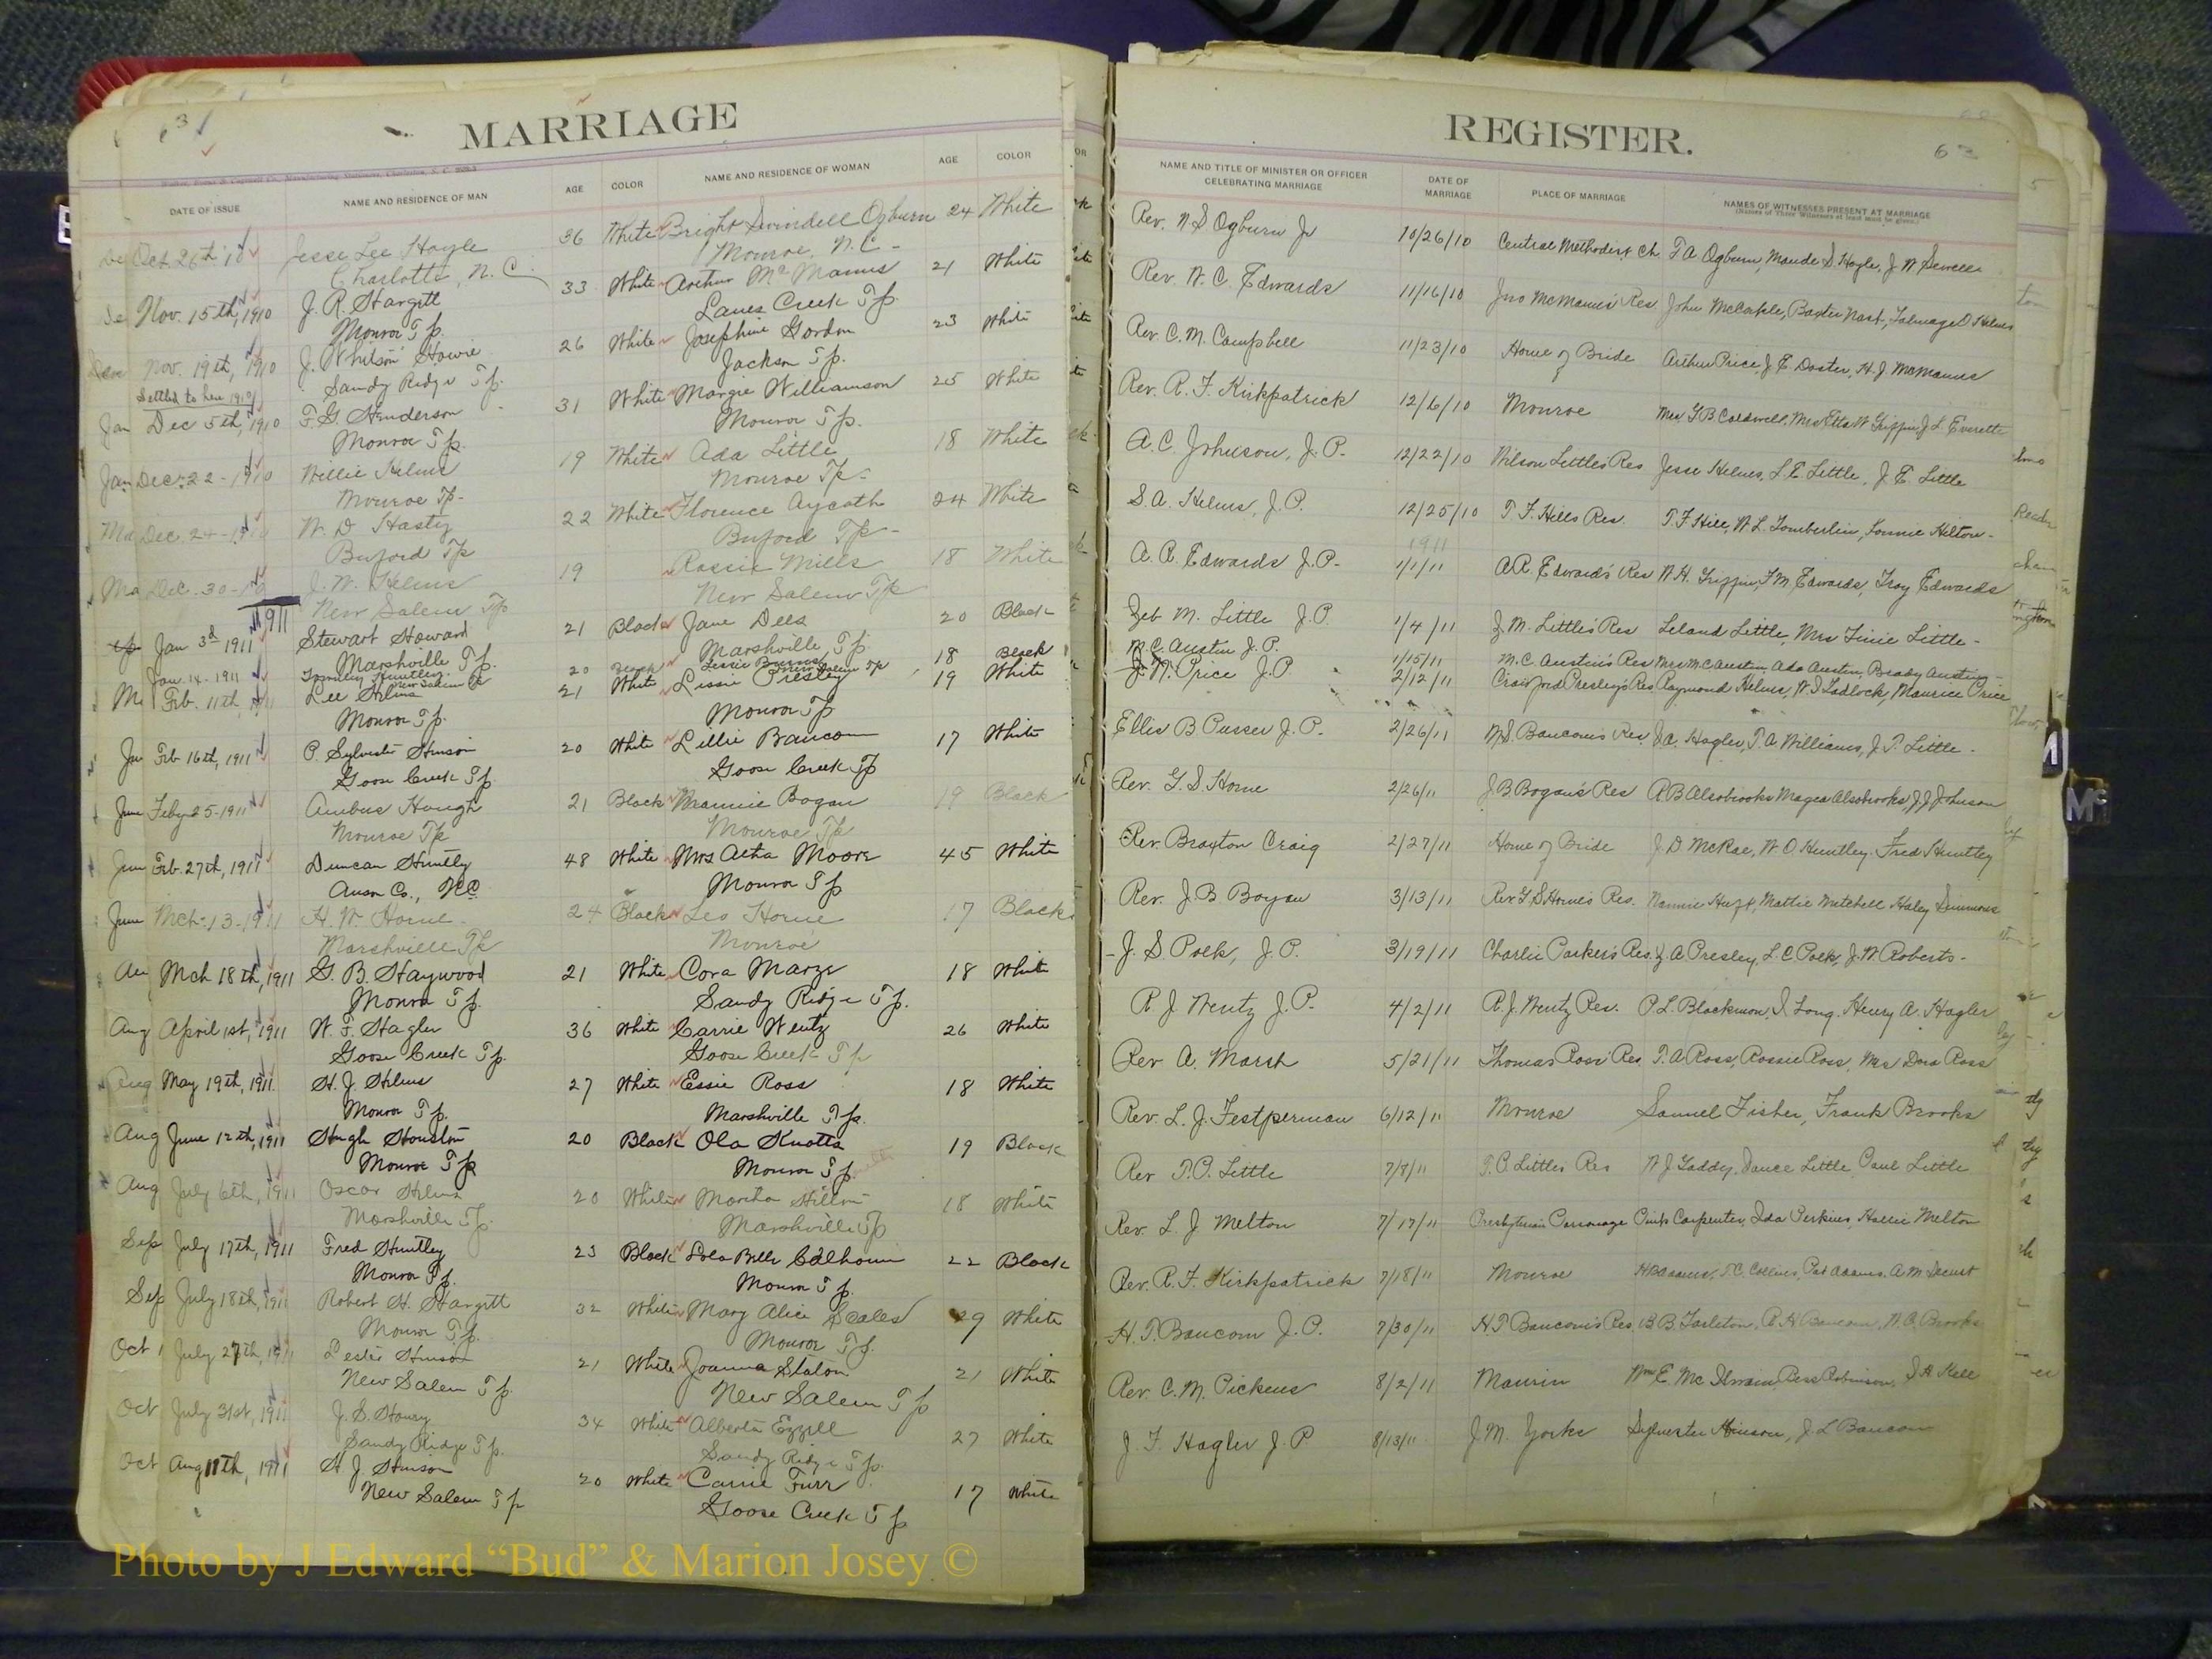 63
MARRIAGE
DATE OF ISSUE
NAME AND RESIDENCE OF MAN
AGE
COLOR
NAME AND RESIDENCE OF WOMAN
AGE
COLOR
Oct. 26th '10 Jesse Lee Hayle 36 White Bright Swindell Ogburn 24 White
Charlotte, N. C. Monroe, N. C.
Nov. 15th, 1910 J. R. Hargett 33 White Arthur McManus 21 White
Monroe Tp. Lanes Creek Tp.
Nov. 19th, 1910 J. Whitson Howie 26 White Josephine Gordon 23 White
Sandy Ridge Tp. Jackson Tp.
Settled to here 1910
Dec 5th, 1910 F. G. Henderson 31 White Margie Williamson 25 White
Monroe Tp. Monroe Tp.
Dec 22 - 1910 Willie Helms 19 White Ada Little 18 White
Monroe Tp - Monroe Tp -
Dec. 24 - 1910 W. D. Hasty 22 White Florence Aycoth 24 White
Buford Tp Buford Tp -
Dec. 30 - 10 J. W. Helms 19 Rossie Mills 18 White
New Salem Tp New Salem Tp
1911
Jan 3d 1911 Stewart Howard 21 Black Jane Dees 20 Black
Marshville Tp. Marshville Tp.
Jan. 14 - 1911 Huntley 20 Black Lessie 18 Black
New Salem Tp New Salem Tp
Feb. 11th, 1911 Lee Helms 21 White Lissie Presley 19 White
Monroe Tp. Monroe Tp
Feb 16th, 1911 P. Sylvester Hinson 20 White Lillie Baucom 17 White
Goose Creek Tp. Goose Creek Tp
Feby 25 - 1911 Ambus Hough 21 Black Mannie Bogan 19 Black
Monroe Tp Monroe Tp
Feb. 27th, 1911 Duncan Huntley 48 White Mrs Aetha Moore 45 White
Anson Co., N.C. Monroe Tp
Mch - 13 - 1911 H. W. Horne 24 Black Leo Horne 17 Black
Marshville Tp Monroe
Mch 18th, 1911 G. B. Haywood 21 White Cora Marze 18 White
Monroe Tp. Sandy Ridge Tp.
April 1st, 1911 W. F. Hagler 36 White Carrie Wentz 26 White
Goose Creek Tp. Goose Creek Tp
May 19th, 1911 H. J. Helms 27 White Essie Ross 18 White
Monroe Tp. Marshville Tp.
June 12th, 1911 Hugh Houston 20 Black Ola Knotts 19 Black
Monroe Tp Monroe Tp.
July 6th, 1911 Oscar Helms 20 White Martha Hilton 18 White
Marshville Tp. Marshville Tp
July 17th, 1911 Fred Huntley 23 Black Lola Belle Calhoun 22 Black
Monroe Tp. Monroe Tp.
July 18th, 1911 Robert H. Hargett 32 White Mary Alice Scales 29 White
Monroe Tp. Monroe Tp.
July 27th, 1911 Lester Hinson 21 White Joanna Staton 21 White
New Salem Tp. New Salem Tp
July 31st, 1911 J. S. Howey 34 White Alberta Ezzell 27 White
Sandy Ridge Tp. Sandy Ridge Tp.
Aug 11th, 1911 H. J. Hinson 20 White Carrie Furr 17 White
New Salem Tp Goose Creek Tp
REGISTER.
63
NAME AND TITLE OF MINISTER OR OFFICER CELEBRATING MARRIAGE
DATE OF MARRIAGE
PLACE OF MARRIAGE
NAMES OF WITNESSES PRESENT AT MARRIAGE
(Names of Three Witnesses at least must be given.)
Rev. N S Ogburn Jr 10/26/10 Central Methodist Ch. T A Ogburn, Maude S Hayle, J W Sewell
Rev. W. C. Edwards 11/16/10 Jno McManus Res John McCorkle, Baxter Nash, Talmage D Helms
Rev. C. M. Campbell 11/23/10 Home of Bride Arthur Price, J E Doster, H. J McManus
Rev. R. F. Kirkpatrick 12/6/10 Monroe Mrs G B Caldwell, Mrs Etta W Griffin, J L Everette
A. C. Johnson, J. P. 12/22/10 Wilson Littles Res Jesse Helms, L. E. Little, J. E. Little
S. A. Helms, J. P. 12/25/10 T. F. Hills Res. T. F Hill, W. L. Tomberlin, Lonnie Hilton -
1911
A. A. Edwards J. P. 1/1/11 A A. Edwards Res W. H. Griffin, F. M. Edwards, Troy Edwards
Zeb M. Little J. P. 1/4/11 J. M. Littles Res Leland Little, Mrs Finie Little -
M. C. Austin J. P. 1/15/11 M. C. Austin's Res Mrs M C Austin, Ada Austin, Brady Austin
J. N. Price J. P. 2/12/11 Crawford Presley's Res Raymond Helms, W I Ladlock, Maurice Price
Ellis B Pusser J. P. 2/26/11 W. S. Baucoms Res J. A. Hagler, T. A Williams, J. T. Little -
Rev. G. S Horne 2/26/11 J. B Bogan's Res A B Alsobrooks Magea Alsobrooks, J J Johnson
Rev. Braxton Craig 2/27/11 Home of Bride J. D McRae, W O Huntley, Fred Huntley
Rev. J. B. Bogan 3/13/11 Rev G. S Hornes Res. Nannie Huff, Mattie Mitchell Haley Simmons
J. S. Polk, J. P. 3/19/11 Charlie Parker's Res. J. A Presley, L. C Polk, J. W Roberts -
R J Wentz J. P. 4/2/11 R. J. Wentz Res. P. L. Blackmon, I. Long, Henry A. Hagler
Rev A. Marsh 5/21/11 Thomas Ross Res. T. A Ross, Rossie Ross, Mrs Dora Ross
Rev. L. J. Festperman 6/12/11 Monroe Samuel Fisher, Frank Brooks
Rev T. P. Little 7/8/11 T. P. Littles Res W J Gaddy, Dance Little Carl Little
Rev. L J Melton 7/17/11 Presbyterian Parsonage Pink Carpenter, Ida Perkins, Hallie Melton
Rev. R. F. Kirkpatrick 7/18/11 Monroe H B Adams, T. C. Collins, Pat Adams, A. M. Secrest
H. T. Baucom J. P. 7/30/11 H T Baucom's Res B B. Tarleton, A. H Baucom, W. A Brooks
Rev. C. M. Pickens 8/2/11 Marvin Wm E. McIlwain, Bess Robinson, S H Kell
J. F. Hagler J. P 8/13/11 J. M. Yorks Sylvester Hinson, J L Baucom
Photo by J Edward “Bud” & Marion Josey ©